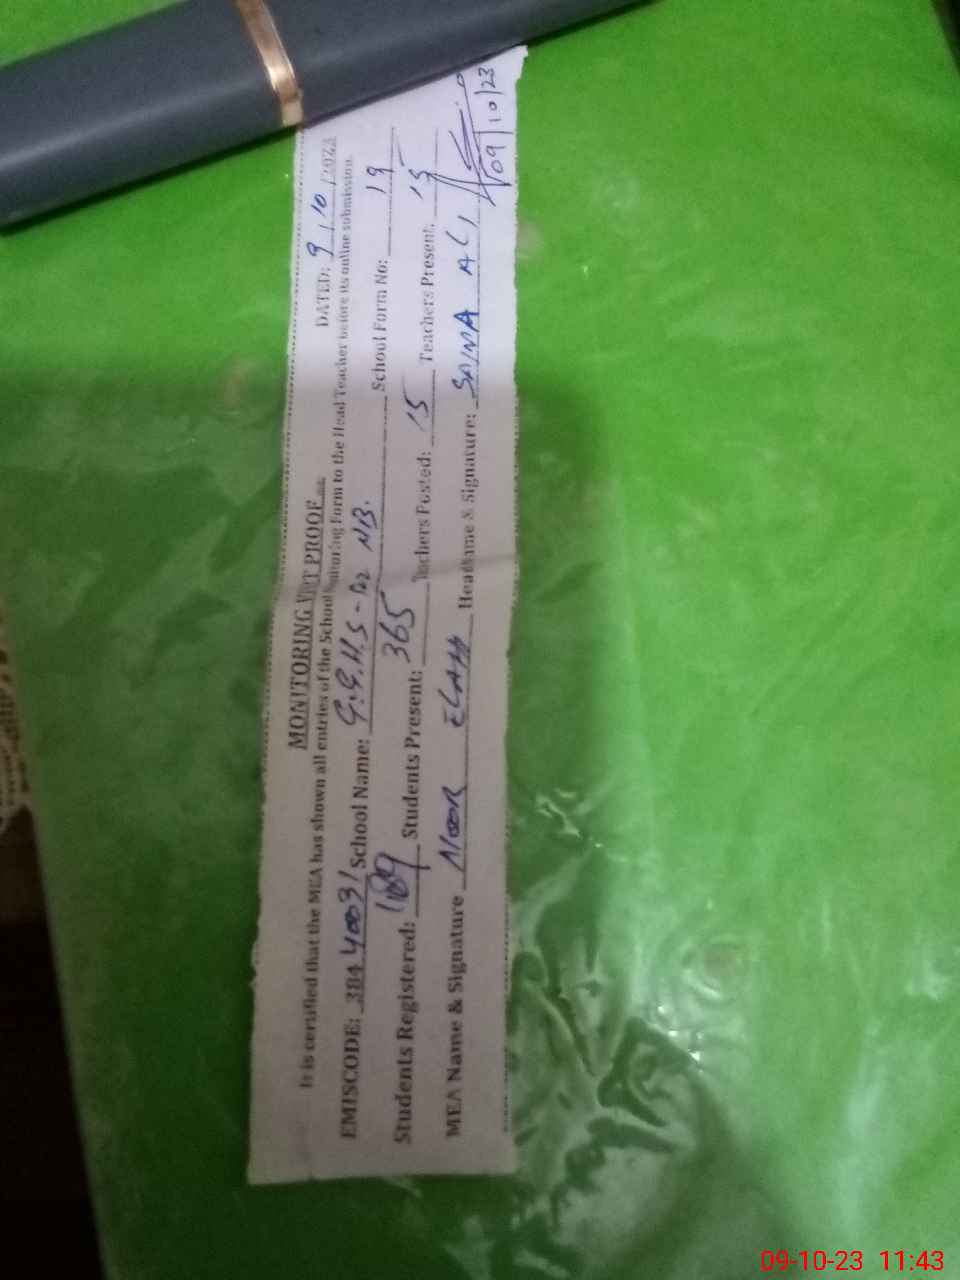 MONITORING VISIT PROOF
DATED: 9/10/2023
It is certified that the MEA has shown all entries of the School Monitoring Form to the Head Teacher before its online submission.
EMISCODE: 38440031 School Name: G.G.H.S - NB. School Form No: 19
Students Registered: Students Present: 365 Teachers Posted: 15 Teachers Present. 15
MEA Name & Signature NOOR ELAHI Head Name & Signature: SAIMA ALI
09/10/23
09-10-23 11:43